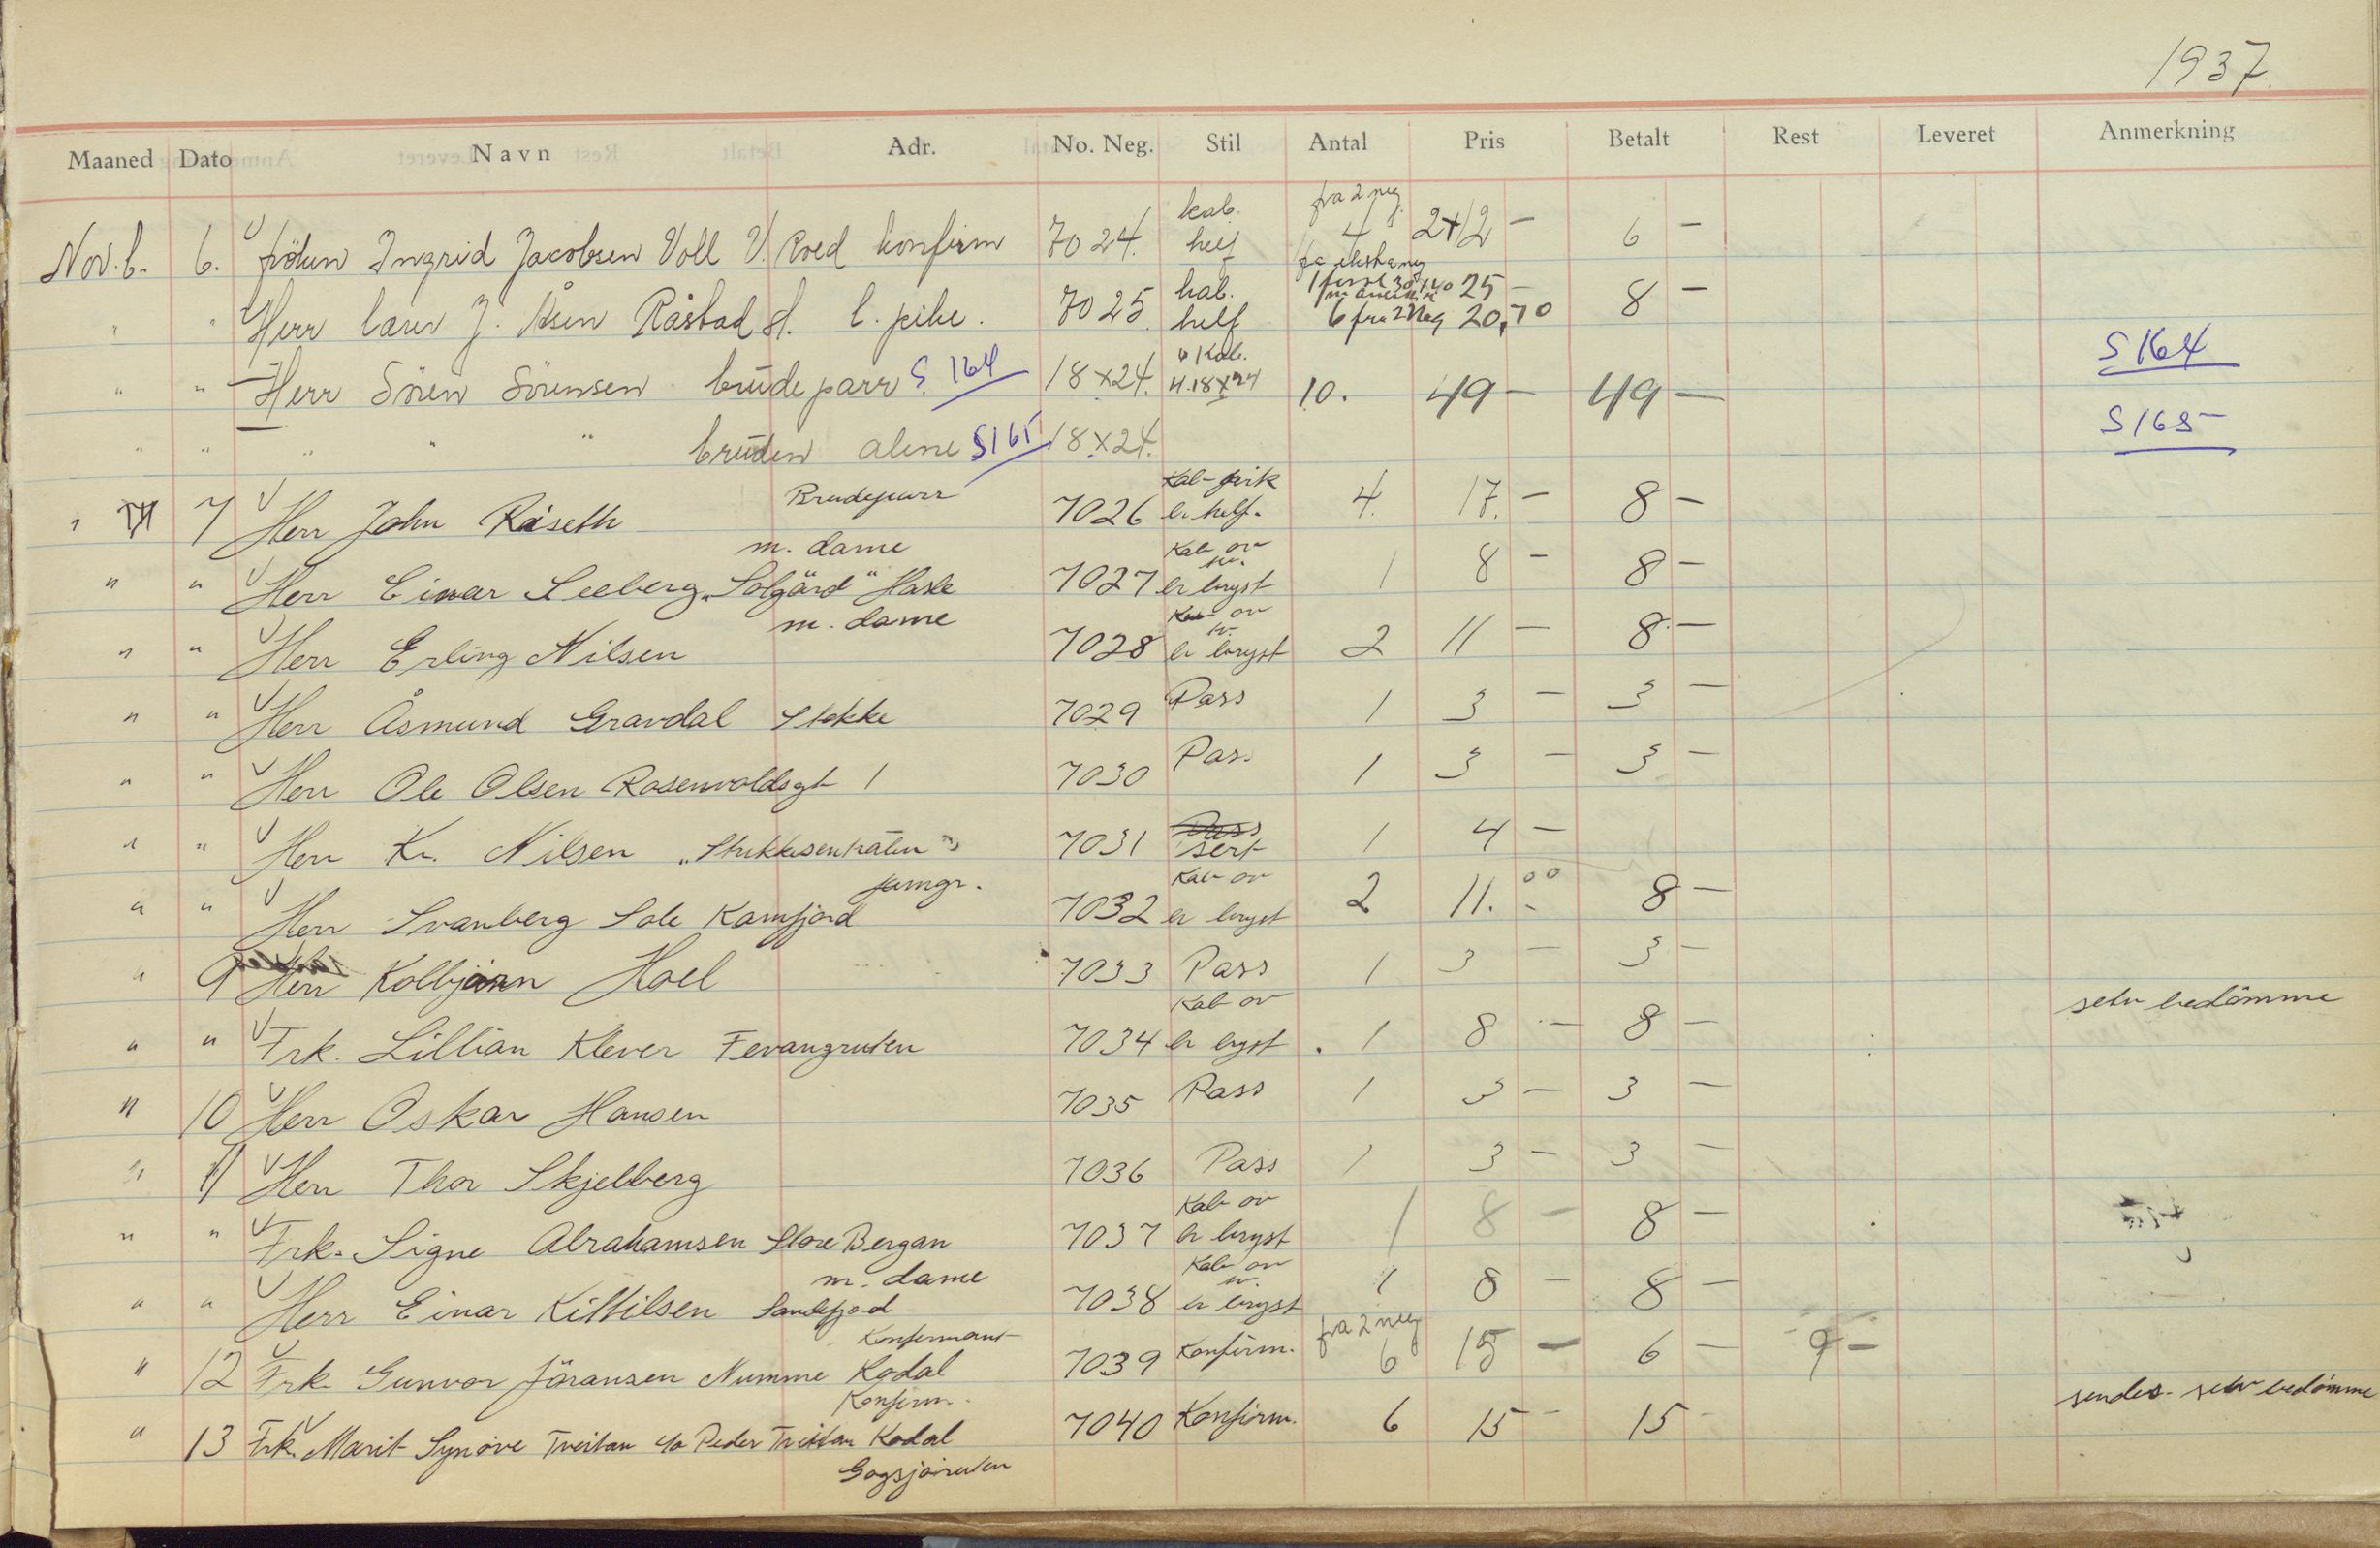 1937.
Maaned Dato Navn Adr. No. Neg. Stil Antal Pris Betalt Rest Leveret Anmerkning
kab. fra 2 neg
Nov. 6. 6. fröken Ingrid Jacobsen Voll V. Roed konfirm 7024. helf 4 2+12 — 6 —
fra
kab. 25 —
" " Herr J. Åsen Råstad st. l. pike. 7025. helf 6 fra 2 Neg 20,70 8 —
6 Kab.
" " Herr Sören Sörensen brüdeparr S. 164 18x24. 4.18x24 10. 49 — 49 — S 164
" " " " brüden alene S165 18x24. S 165
Brudeparr Kab-
" 7 Herr John Råseth 7026 er helf. 4. 17. — 8 —
m. dame Kab ov
" " Herr Einar Seeberg "Solgård" Hasle 7027 er bryst 1 8 — 8 —
m. dame Kab ov
" " Herr Erling Nilsen 7028 er bryst 2 11 — 8 —
" " Herr Åsmund Gravdal Stokke 7029 Pass 1 3 — 3 —
" " Herr Ole Olsen Rosenvoldsgt 1 7030 Pass 1 3 — 3 —
Pass
" " Herr Kr. Nilsen 7031 sert 1 4 —
jamgr. Kab ov
" " Herr Svanberg Sole Kamfjord 7032 er bryst 2 11.00 8 —
" 9 Herr Kolbjørn Hoel 7033 Pass 1 3 — 3 —
Kab ov selv bedömme
" " Frk. Lillian Klever Fevangruten 7034 er bryst 1 8 — 8 —
" 10 Herr Oskar Hansen 7035 Pass 1 3 — 3 —
" 11 Herr Thor Skjelberg 7036 Pass 1 3 — 3 —
Kab ov
" " Frk. Signe Abrahamsen Store Bergan 7037 er bryst 1 8 — 8 —
m. dame Kab ov
" " Herr Einar Kittilsen Sandefjord 7038 er bryst 1 8 — 8 —
Konfirmant fra 2 neg
" 12 Frk. Gunvor Jöransen Numme Kodal 7039 Konfirm. 6 15 — 6 — 9 —
Konfirm. sendes selv bedömme
" 13 Frk. Marit Synöve Treitan c/o Peder Treitan Kodal 7040 Konfirm. 6 15 — 15 —
Gogsjöruten